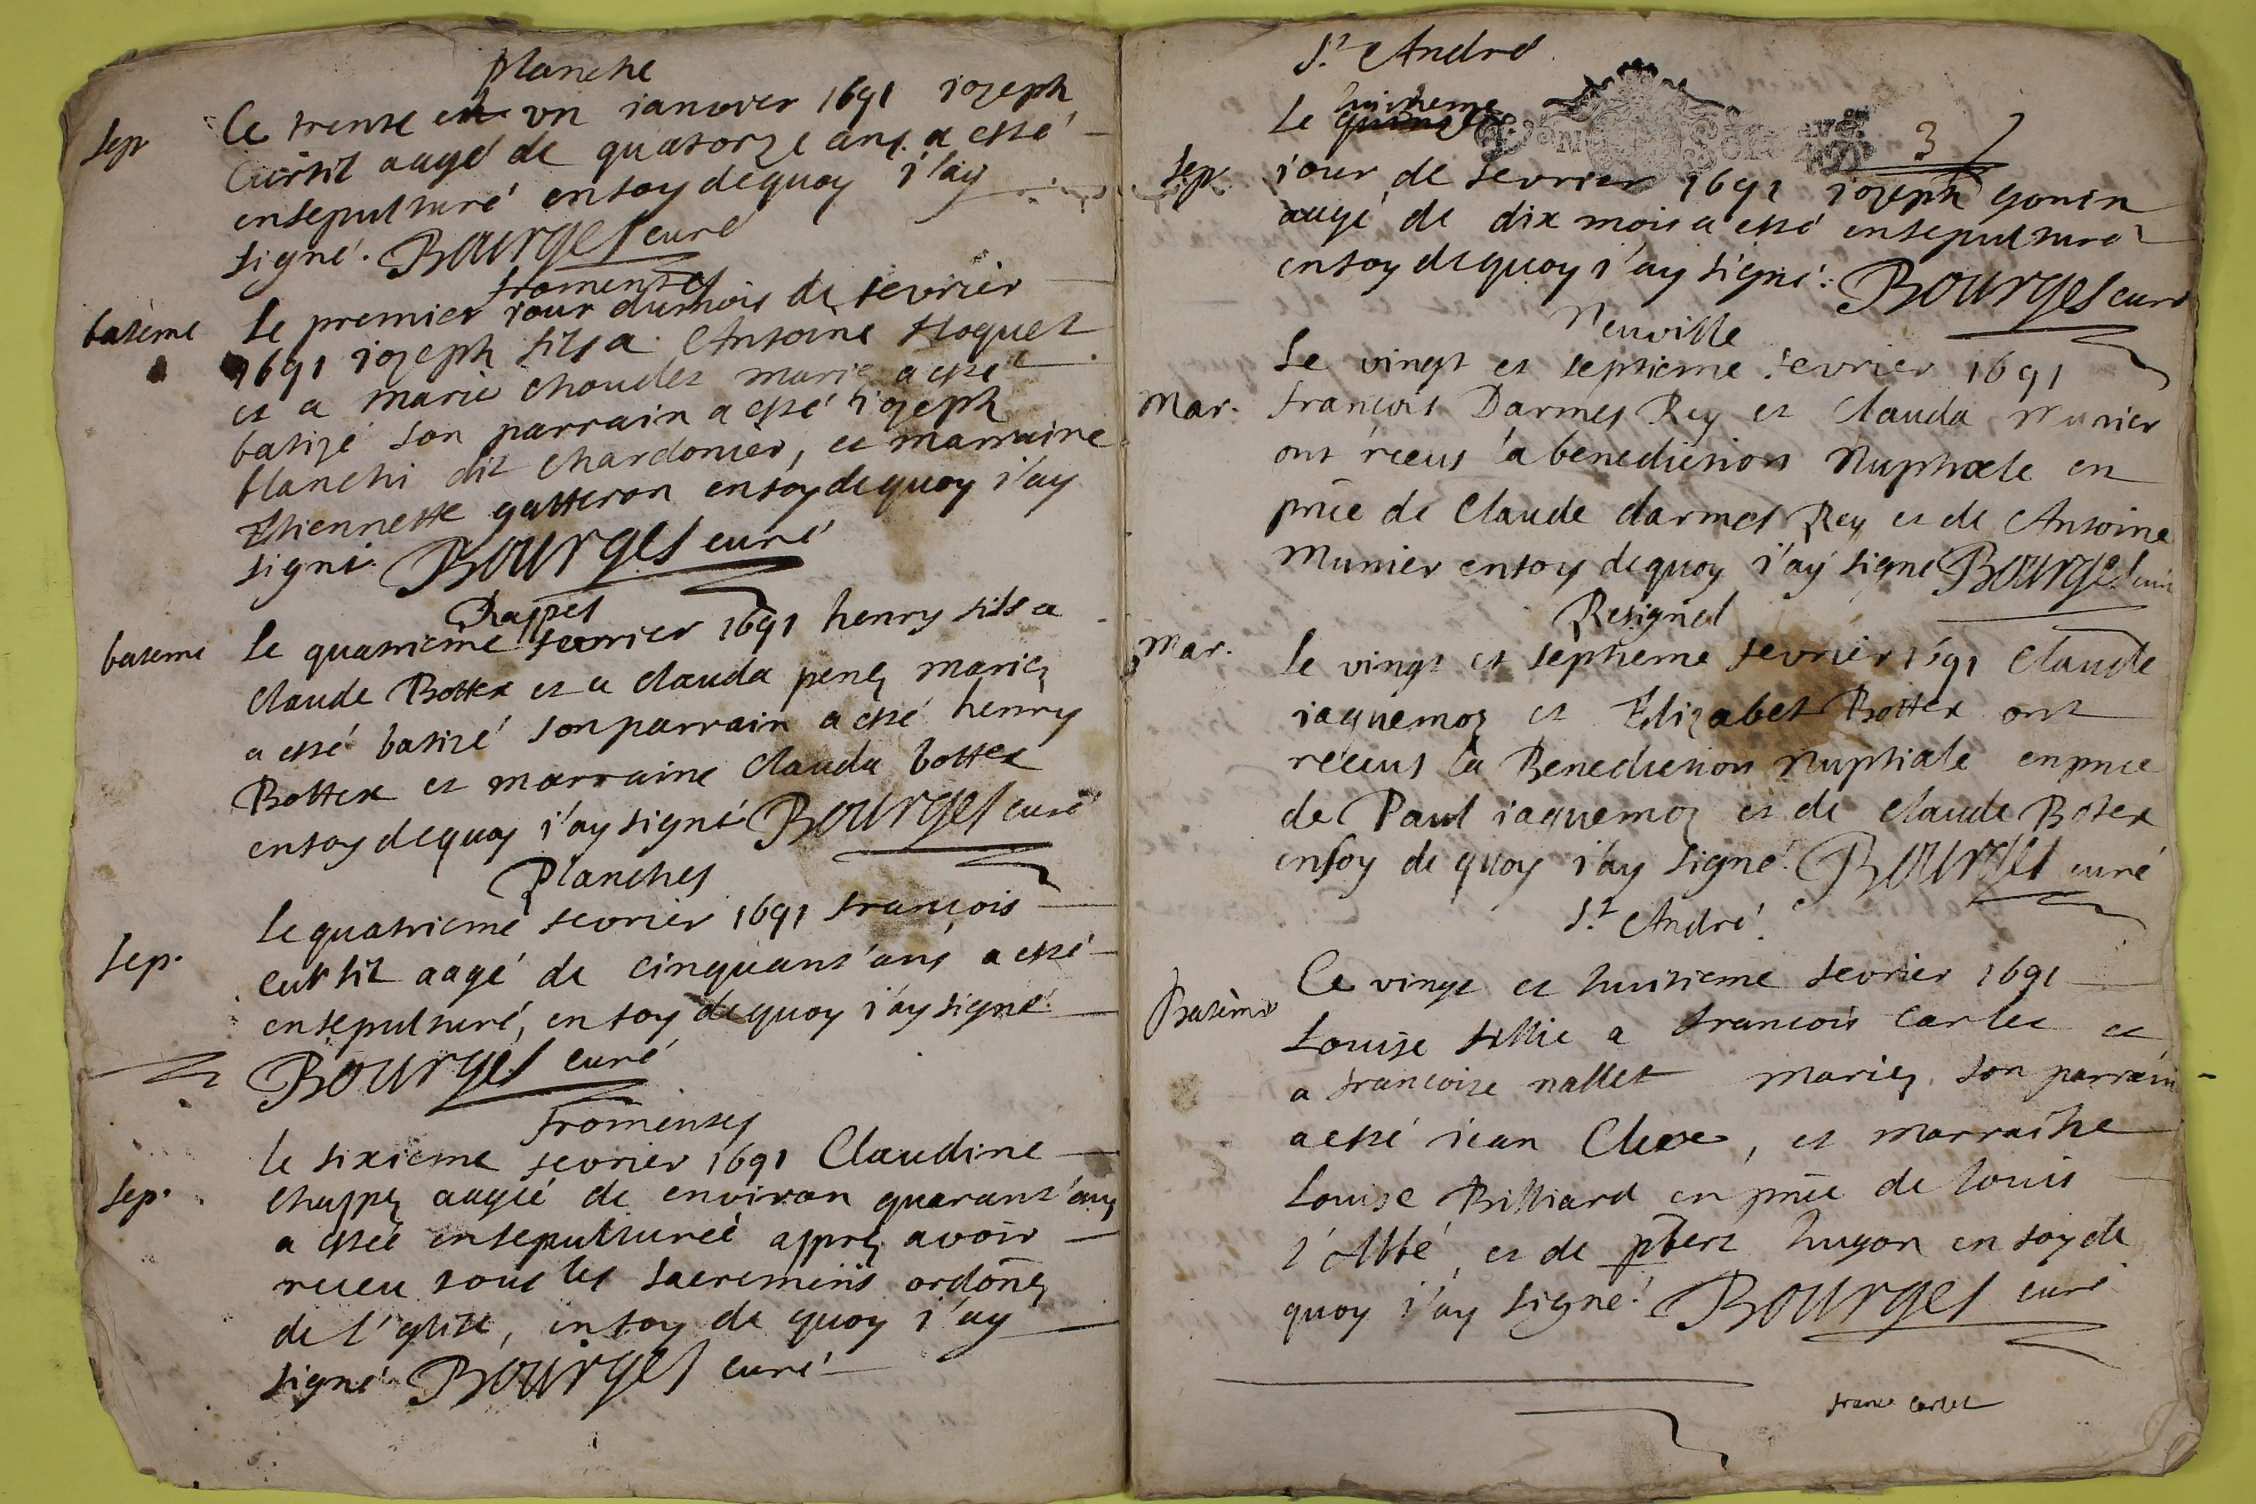 planche
sep
Ce trente et un ianvier 1691 iozeph
Curtil aagé de quatorze ans a esté
ensepulturé en foy de quoy i'ay
signé. Bourges curé
fromentes
batême
Le premier iour du mois de fevrier
1691 iozeph fils a Antoine floquet
et a marie choudet mariés a esté
batizé son parrain a esté iozeph
blanchi dit chardonier, et marraine
Etiennette gatteron en foy de quoy i'ay
signé. Bourges curé
Rappes
bateme
Le quatrieme fevrier 1691 henry fils a
Claude Bottex et a clauda penez mariez
a esté batizé son parrain a esté henry
Bottex et marraine Clauda bottex
en foy de quoy i'ay signé Bourges curé
Planches
sep.
Le quatrieme fevrier 1691 françois
curtil aagé de cinquant'ans a esté
ensepulturé, en foy de quoy i'ay signé
Bourges curé
fromentes
sep.
le sixieme fevrier 1691 Claudine
chappez aagée de environ quarant'ans
a estée ensepulturée apprez avoir
receu tous les sacremens ordõnez
de l'eglise, en foy de quoy i'ay
signé Bourges curé
St André
Le huitieme
3
sep.
iour de fevrier 1691 iozeph gonin
aagé de dix mois a esté ensepulturé
en foy de quoy i'ay signé. Bourges curé
Neuville
Mar.
Le vingt et septieme fevrier 1691
françois Darmes Rey et Clauda Munier
ont receus la benediction Nuptiale en
pñce de Claude darmes Rey et de Antoine
Munier en foy de quoy i'ay signé Bourges curé
Resignel
Mar.
Le vingt et septieme fevrier 1691 Claude
iaquemoz et Elizabet Bottex ont
receus la Benediction Nuptiale en pnce
de Paul iaquemoz et de Claude Botex
en foy de quoy i'ay signé. Bourges curé
St André
Batême
Ce vingt et huitieme fevrier 1691
Louise fillie a françois Carlet et
a françoise nallet mariez son parrain
a esté iean Clere, et marraine
Louise Billiard en pñce de louis
l'Abbé, et de pbert hugon en foy de
quoy i'ay signé. Bourges curé
france Carlet